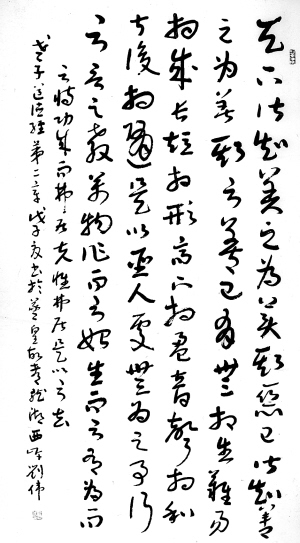 天下皆知美之为美斯恶已皆知善
之为善斯不善已有無相生難易
相成长短相形高下相盈音聲相和
前後相随是以聖人处無为之事行
不言之教萬物作而不始生而不有为而
不恃功成而弗居夫惟弗居是以不去
老子道德经第二章戊子夏书於湖西劉伟